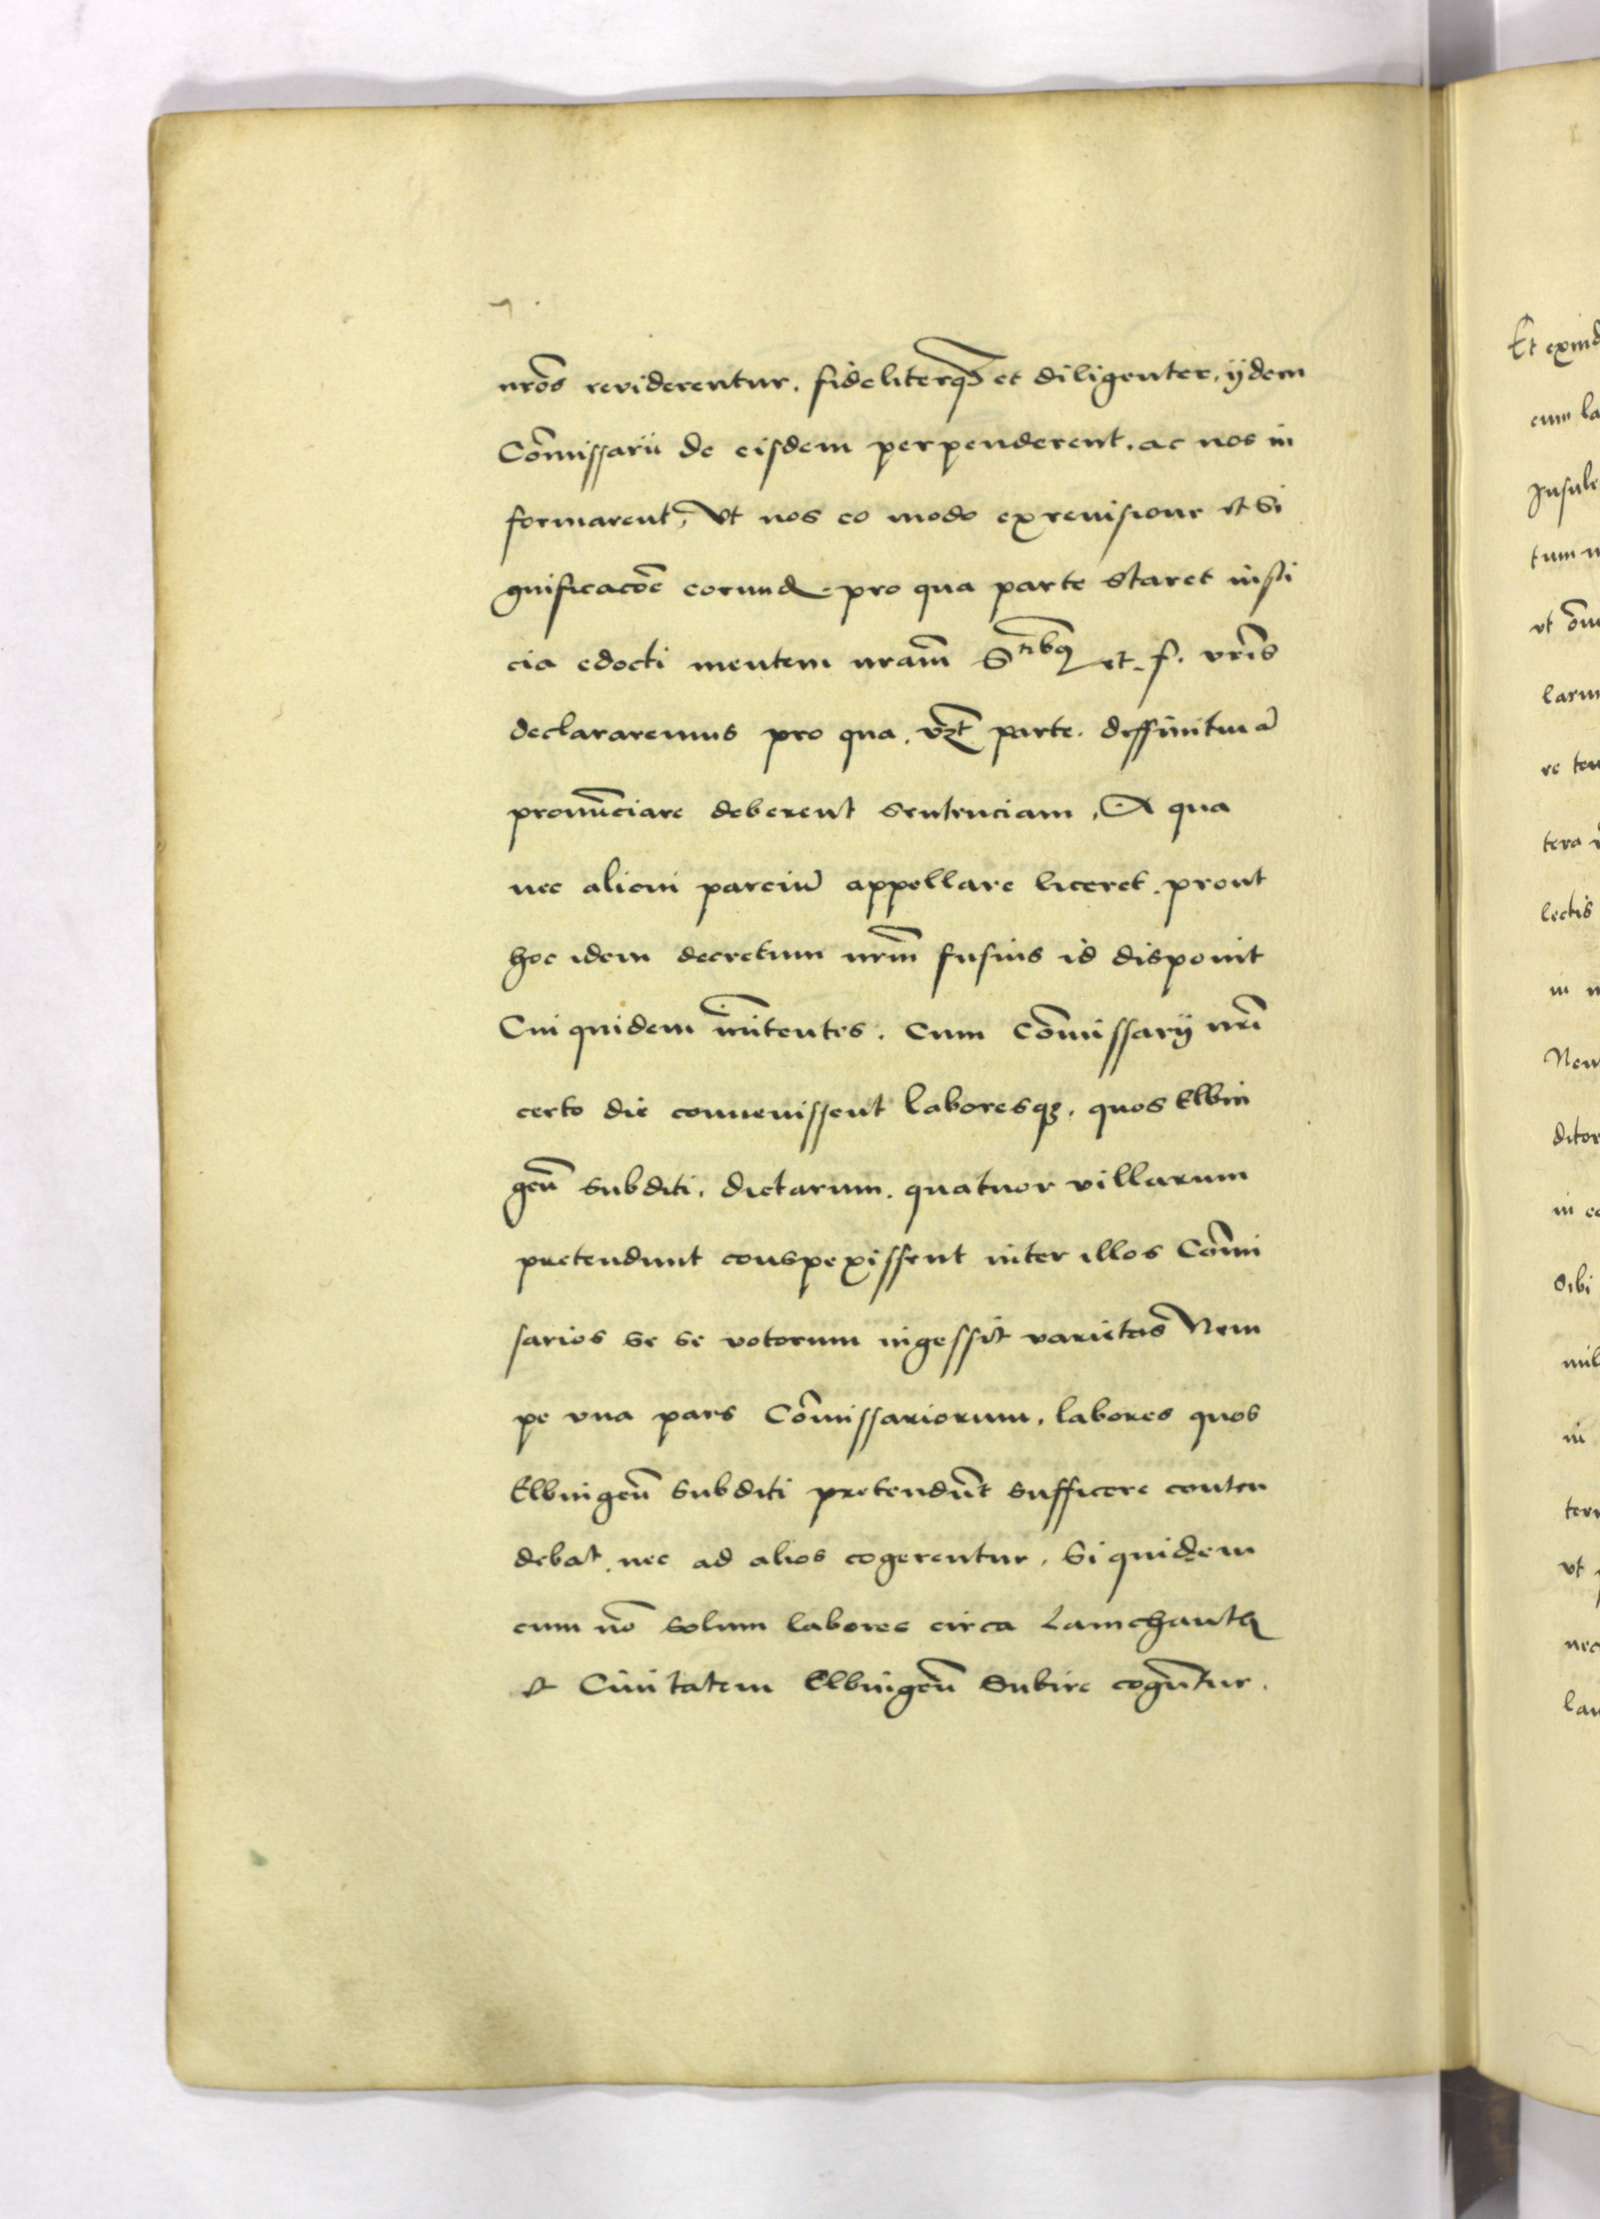 nr̃os reviderentur. fideliterq̃ et diligenter, ijdem
Com̃issarii de eisdem perpenderent. ac nos in
formarent, Vt nos eo modo ex reuisione et Si
gnificacõe eorund pro qua parte staret iusti
cia edocti mentem nram̃ S^tibq et. f. vr̃is
declararemus pro qua. vz̃t parte. diffinitiuã
pronũciare deberent sentenciam, A qua
nec alicui parciũ appellare liceret. prout
hoc idem decretum nrm̃ fusius id disponit
Cui quidem in̄itentes. Cum Com̃issarij nr̃i
certo die conuenissent laboresq3. quos Elbin
geñ subditi. dictarum. quatuor villarum
pretendunt conspexissent inter illos Com̃i
sarios se se votorum ingessit varietas Nem
pe vna pars Com̃issariorum, labores quos
Elbingeñ subditi pretendũt sufficere conten
debat. nec ad alios cogerentur. Siquidem
cum nõ solum labores circa Lamchanth
et Ciuitatem Elbingeñ Subire cogũtur.
Et exind
cum la
Insule
tum
vt om̃
larum
re ten
tera
lectis
in
Nem
ditor
in
Sibi
in
vt
nec
lan